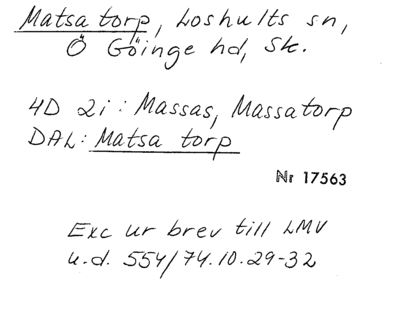 Matsa torp, Loshults sn,
Ö Göinge hd, Sk.
4D 2i: Massas, Massatorp
DAL: Matsa torp
Nr 17563
Exc ur brev till LMV
u.d. 554/74.10.29-32